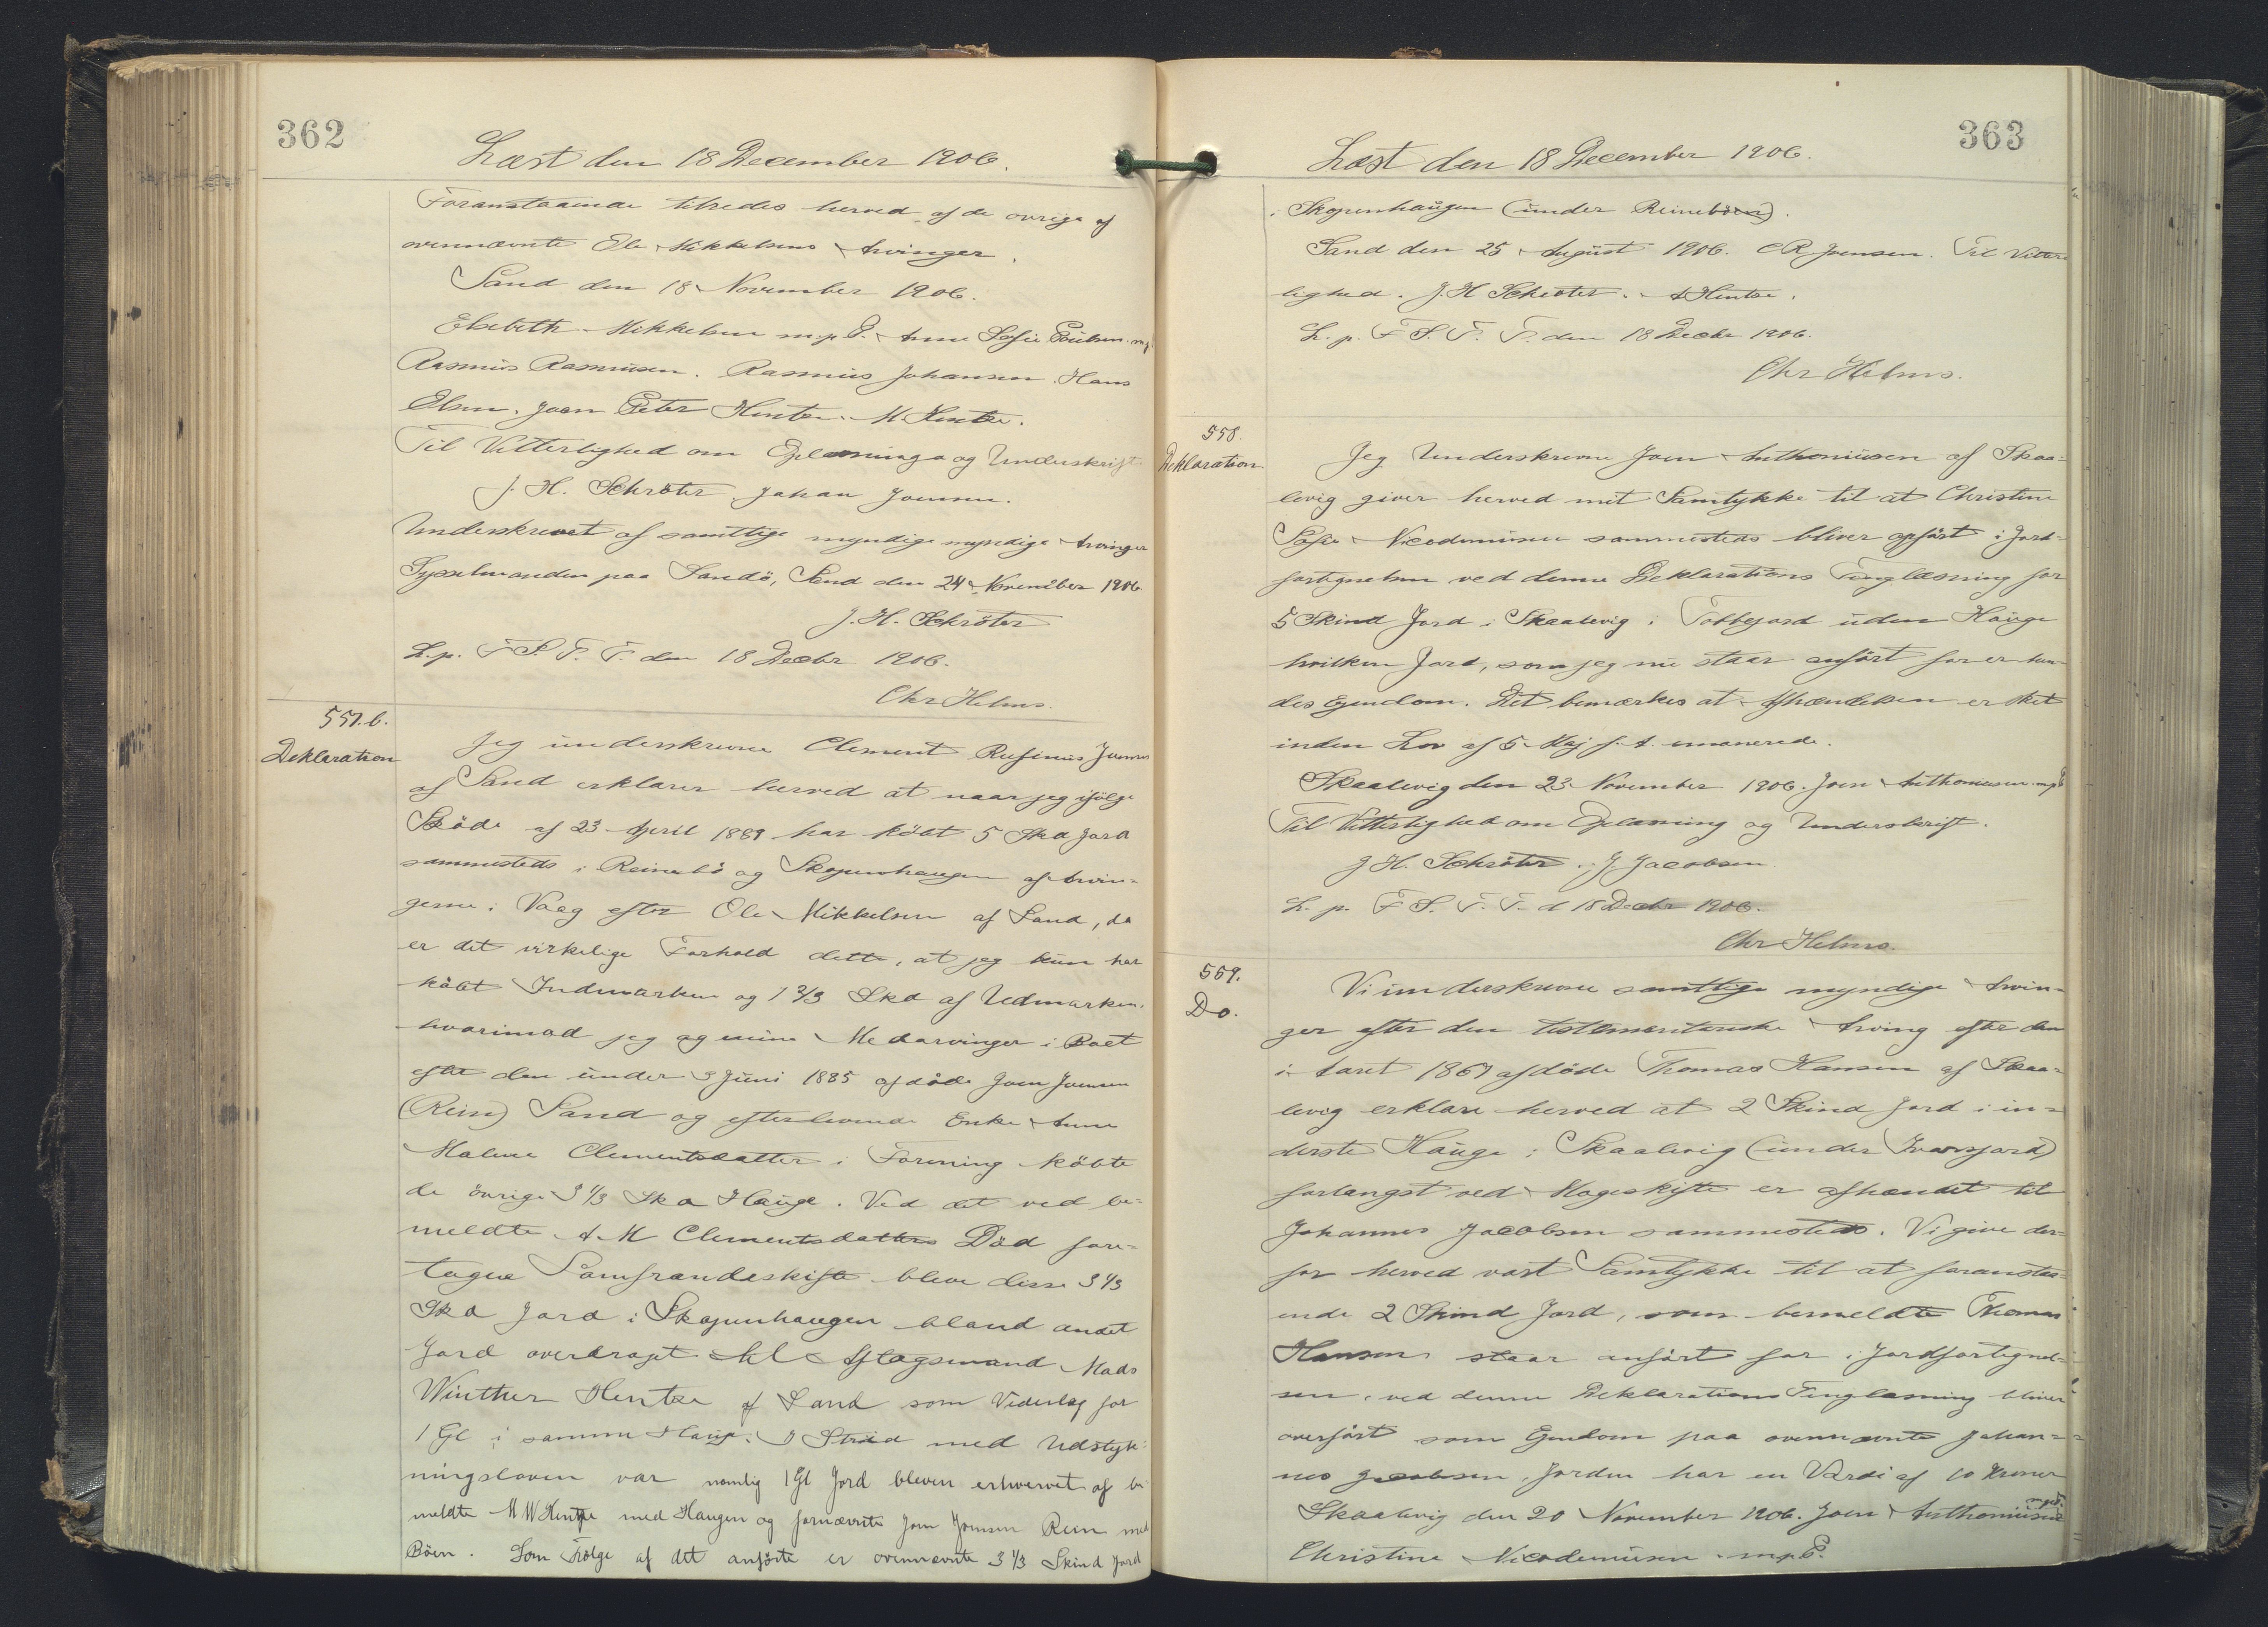 362
Læst den 18 December 1906.
Foranstaaende tiltrædes herved af de øvrige af
ovennævnte Ole Mikkelsens Arvinger.
Sand den 18 November 1906.
Elsebeth Mikkelsen m.p.P. Anne Sofie Poulsen m.p.
Rasmus Rasmusen. Rasmus Johansen. Hans
Olsen. Joen Peter Hentze. M. Hentze.
Til Vitterlighed om Oplæsning og Underskrift
J. H. Schröter. Johan Joensen.
Underskrevet af samtlige myndige myndige Arvinger
Sysselmanden paa Sandö, Sand den 24 November 1906
J. H. Schröter
L. p. F. S. T. T. den 18 Decbr 1906.
Chr Helms.
557.b.
Deklaration
Jeg underskrevne Clement Rufinus Joensen
af Sand erklærer herved at naar jeg ifölge
Sköde af 23 April 1889 har köbt 5 Skd Jord
sammesteds i Reinebö og Skopunhaugen af Arvin-
gerne i Vaag efter Ole Mikkelsen af Sand, da
er det virkelige Forhold dette, at jeg kun har
köbt Indmarken og 1 2/3 Skd af Udmarken,
hvorimod jeg og mine Medarvinger i Boet
efter den under 3 Juni 1885 afdöde Joen Joensen
(Rein) Sand og efterlevende Enke Anne
Malene Clementsdatter i Forening köbte
de övrige 3 1/3 Skd Hauge. Ved det ved be-
meldte A. M Clementsdatters Död fore-
tagne Samfrændeskifte bleve disse 3 1/3
Skd Jord i Skopunhaugen bland andet
Jord overdraget til Aftagsmand Mads
Winther Hentze af Sand som Vederlag for
1 Gl i samme Hauge. I Strid med Udstyk-
ningsloven var nemlig 1 Gl Jord bleven erhvervet af be
meldte M W Hentze med Haugen og fornævnte Joen Joensen Rein med
Böen. Som Følge af det anførte er ovennævnte 3 1/3 Skind Jord
363
Læst den 18 December 1906.
i Skopunhaugen (under Reineböen).
Sand den 25 August 1906. C R Joensen. Til Vitter-
lighed. J. H Schröter. A Hentze.
L. p. F. S. T. T. den 18 Decbr 1906.
Chr Helms.
558.
Deklaration
Jeg Underskrevne Joen Anthoniusen af Skaa-
levig giver herved mit Samtykke til at Christine
Sofie Nicodemusen sammesteds bliver opfört i Jord-
fortegnelsen ved denne Deklarations Tinglæsning for
5 Skind Jord i Skaalevig i Toftejord uden Hauge
hvilken Jord, som jeg nu staar anfört for er hen-
des Ejendom. Det bemærkes at Afhændelsen er sket
inden Lov af 5 Maj f. A. emanerede.
Skaalevig den 23 November 1906. Joen Anthoniusen m.p.P
Til Vitterlighed om Oplæsning og Underskrift.
J. H. Schröter. J. Jacobsen
L. p. F. S. T. T. d 18 Decbr 1906.
Chr Helms.
559.
Do.
Vi underskrevne samtlige myndige Arvin-
ger efter den testamentariske Arving efter den
i Aaret 1867 afdöde Thomas Hansen af Skaa-
levig erklære herved at 2 Skind Jord i in-
derste Hauge i Skaalevig (under Ivarsjord)
forlængst ved Mageskifte er afhændet til
Johannes Jacobsen sammesteds. Vi give der-
for herved vort Samtykke til at foranstaa-
ende 2 Skind Jord, som bemeldte Thomas
Hansen staar anfört for i Jordfortegnel-
sen, ved denne Deklarations Tinglæsning bliver
overfört som Ejendom paa ovennævnte Johan-
nes Jacobsen. Jorden har en Værdi af 10 Kroner
Skaalevig den 20 November 1906. Joen Anthoniusen m.p.P.
Christine Nicodemusen m.p.P.